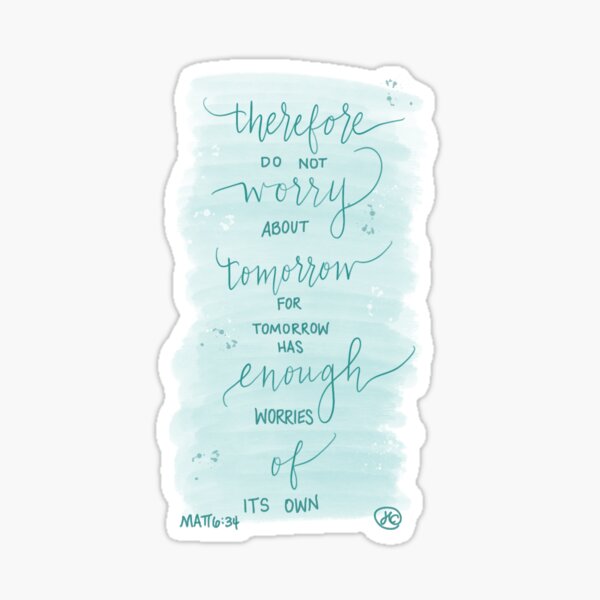 therefore
DO NOT
worry
ABOUT
tomorrow
FOR
TOMORROW
HAS
enough
WORRIES
of
ITS OWN
MATT 6:34
HC